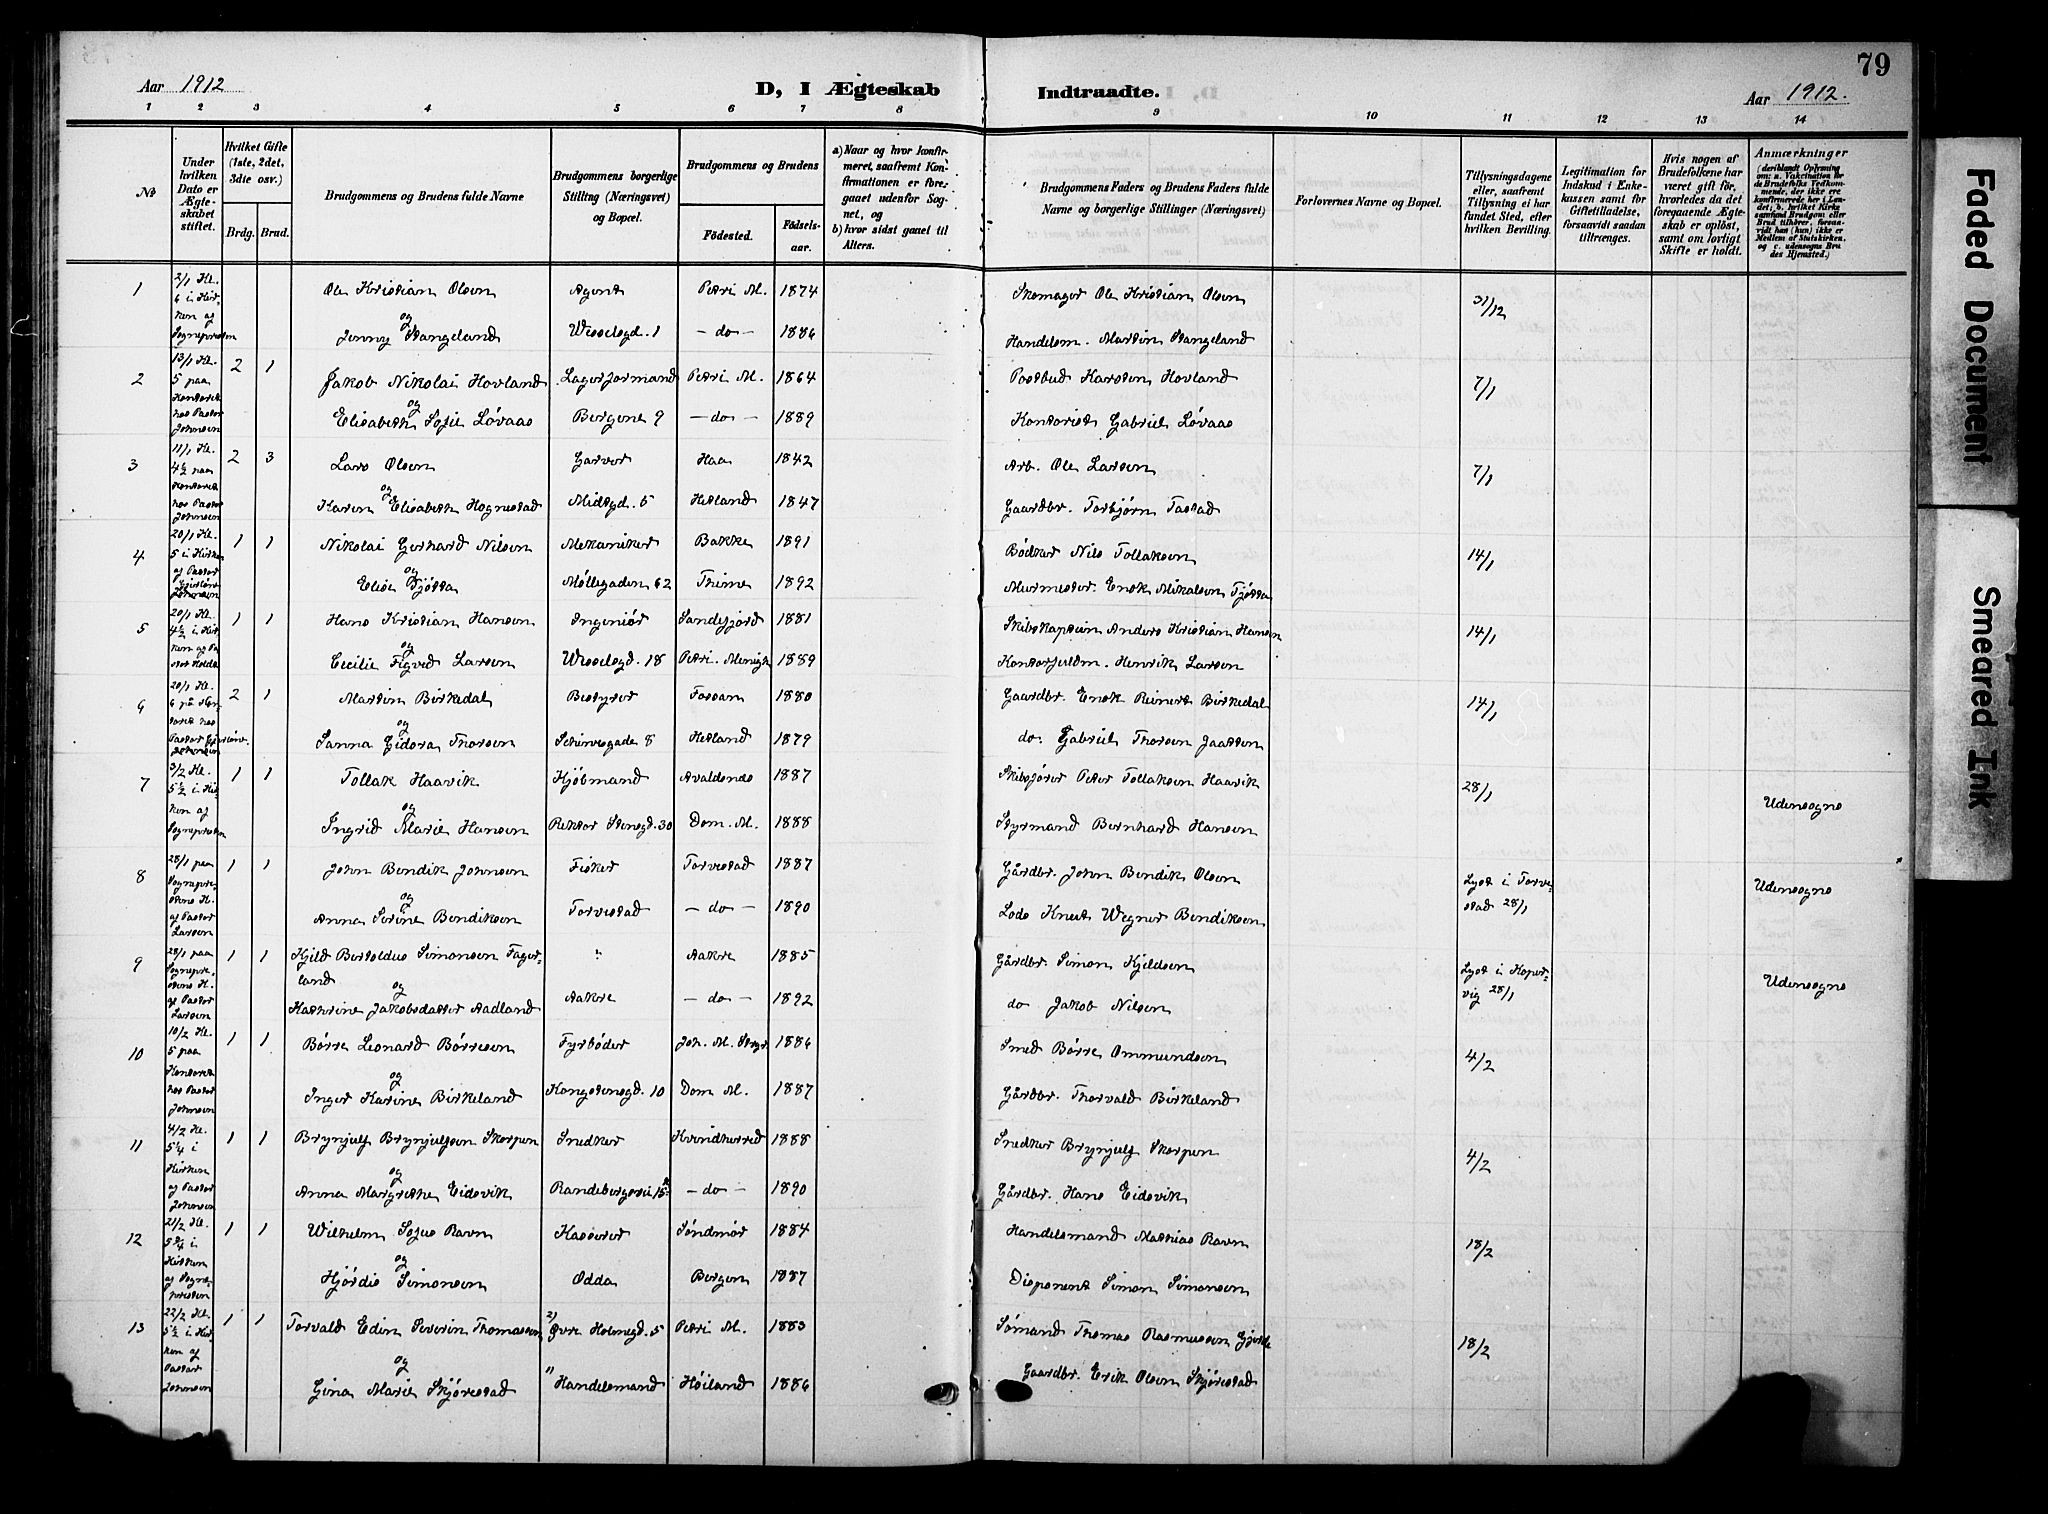 79
Aar 1912
D, I Ægteskab Indtraadte.
Aar 1912.
1 2 3 4 5 6 7 8 9 10 11 12 13 14
№
Under hvilken Dato er Ægteskabet stiftet.
Hvilket Gifte (1ste, 2det, 3die osv.)
Brdg. Brud.
Brudgommens og Brudens fulde Navne
Brudgommens borgerlige Stilling (Næringsvei) og Bopæl.
Brudgommens og Brudens
Fødested. Fødselsaar.
a) Naar og hvor konfirmeret, saafremt Konfirmationen er foregaaet udenfor Sognet, og
b) hvor sidst gaaet til Alters.
Brudgommens Faders og Brudens Faders fulde Navne og borgerlige Stillinger (Næringsvei)
Forlovernes Navne og Bopæl.
Tillysningsdagene eller, saafremt Tillysning ei har fundet Sted, efter hvilken Bevilling.
Legitimation for Indskud i Enkekassen samt for Giftetilladelse, forsaavidt saadan tiltrænges.
Hvis nogen af Brudefolkene har været gift før, hvorledes da det foregaaende Ægteskab er opløst, samt om lovligt Skifte er holdt.
Anmærkninger (deriblandt Oplysning om: a. Vakcination for de Brudefolks Vedkommende, der ikke ere konfirmerede her i Landet; b. hvilket Kirkesamfund Brudgom eller Brud tilhører, forsaavidt han (hun) ikke er Medlem af Statskirken, og c. udensogns Brudes Hjemsted.)
1 2/1 Kl. 6 i Kirken af Sognepresten Ole Kristian Olsen Agent Petri M. 1874 Skomager Ole Kristian Olsen 31/12
og
Jenny Stangeland Wesselsgd. 1 - do - 1886 Handelsm. Martin Stangeland
2 13/1 Kl. 5 paa Kontoret hos Pastor Johnsen 2 1 Jakob Nikolai Hovland Lagerformand Petri M. 1864 Postbud Karsten Hovland 7/1
og
Elisabeth Sofie Løvaas Bergene 9 - do - 1889 Kontorist Gabriel Løvaas
3 11/1 Kl. 4½ paa Kontoret hos Pastor Johnsen 2 3 Lars Olsen Garver Haa 1842 Arb. Ole Larsen 7/1
og
Karen Elisabeth Hognestad Midtgd. 5 Hetland 1847 Gaardbr. Torbjørn Tastad
4 20/1 Kl. 5 i Kirken af Pastor 1 1 Nikolai Gerhard Nilsen Mekaniker Bakke 1891 Bødker Nils Tollaksen 14/1
og
Elise Tjøtta Møllegaden 62 Thime 1892 Murmester. Enok Mikalsen Tjøtta
5 20/1 Kl. 4½ i Kirken af Pastor Holdt 1 1 Hans Kristian Hansen Ingeniør Sandefjord 1881 Skibskaptein Anders Kristian Hansen 14/1
og
Cecilie Figved Larsen Wesselsgd. 18 Petri. Menigh 1889 Kontorfuldm. Henrik Larsen
6 20/1 Kl. 6 på Kontoret hos Pastor 2 1 Martin Birkedal Bestyrer Fossan 1880 Gaardbr. Enok Reinert Birkedal 14/1
og
Sanna Gidora Thorsen 8 Hetland 1879 do. Gabriel Thorsen Jaatten
7 3/2 Kl. 5½ i Kirken af Sognepresten 1 1 Tollak Haavik Kjøbmand Avaldsnes 1887 Skibsfører Peter Tollaksen Haavik 28/1 Udensogns
og
Ingrid Marie Hansen Rektor Stensgd. 30 Dom. M. 1888 Styrmand Bernhard Hansen
8 28/1 paa Sogneprestens K. af Pastor Larsen 1 1 John Bendik Johnsen Fisker Torvestad 1887 Gårdbr. John Bendik Olsen Lyst i Torvestad 28/1 Udensogns
og
Anna Serine Bendiksen Torvestad - do - 1890 Lods Knut Wegner Bendiksen
9 28/1 paa Sogneprestens K. af Pastor Larsen 1 1 Kjeld Bertoldus Simonsen Fagerland " Aakre 1885 Gårdbr. Simon Kjeldsen Lyst i Kopervig 28/1 Udensogns
og
Kathrine Jakobsdatter Aadland Aakre - do - 1892 do Jakob Nilsen
10 10/2 Kl. 5 paa Kontoret hos Pastor Johnsen 1 1 Børre Leonard Børresen Fyrbøder Joh. M. Stvgr 1886 Smed Børre Ommundsen 4/2
og
Inger Karine Birkeland Kongstensgd. 10 Dom M. 1887 Gårdbr. Thorvald Birkeland
11 4/2 Kl. 5¼ i Kirken af Pastor Johnsen 1 1 Brynjulf Brynjulfsen Skorpen Snedker Kvindherred 1888 Snedker Brynjulf Skorpen 4/2
og
Anna Margrethe Eidsvik Randebergsvei 15 - do - 1890 Gårdbr. Hans Eidsvik
12 21/2 Kl. 5¾ i Kirken af Sognepresten 1 1 Wilhelm Sofus Ravn Kasserer Søndmør 1884 Handelsmand Mathias Ravn 18/2
og
Hjørdis Simonsen Odda Bergen 1887 Disponent Simon Simonsen
13 22/2 Kl. 5½ i Kirken af Pastor Johnsen 1 1 Torvald Edin Severin Thomassen 2) Øvre Holmegd. 5 Petri M. 1883 Sømand Thomas Rasmussen Gjerde 18/2
og
Gina Marie Skjørestad 1) Handelsmand Høiland 1886 Gaardbr. Erik Olsen Skjørestad
Faded Document
Smeared Ink